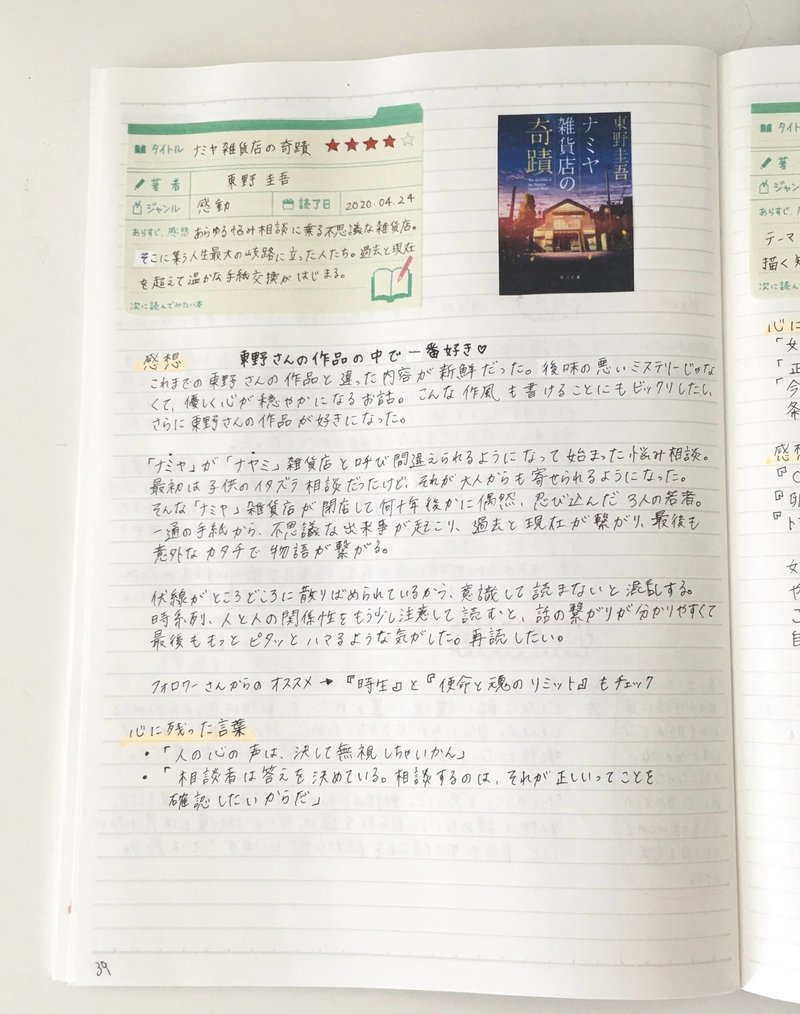 タイトル ナミヤ雑貨店の奇蹟 ★★★★☆
著者 東野圭吾
ジャンル 感動 読了日 2020.04.24
あらすじ、感想 あらゆる悩み相談に乗る不思議な雑貨店。
そこに集う人生最大の岐路に立った人たち。過去と現在
を超えて温かな手紙交換がはじまる。
次に読んでみたい本
東野圭吾
ナミヤ
雑貨店の
奇蹟
角川文庫
感想 東野さんの作品の中で一番好き♡
これまでの東野さんの作品と違った内容が新鮮だった。後味の悪いミステリーじゃな
くて、優しく心が穏やかになるお話。こんな作風も書けることにもビックリしたし、
さらに東野さんの作品が好きになった。
「ナミヤ」が「ナヤミ」雑貨店と呼び間違えられるようになって始まった悩み相談。
最初は子供のイタズラ相談だったけど、それが大人からも寄せられるようになった。
そんな「ナミヤ」雑貨店が閉店して何十年後かに偶然、忍び込んだ3人の若者。
一通の手紙から、不思議な出来事が起こり、過去と現在が繋がり、最後も
意外なカタチで物語が繋がる。
伏線がところどころに散りばめられているから、意識して読まないと混乱する。
時系列、人と人の関係性をもう少し注意して読むと、話の繋がりが分かりやすくて
最後ももっとピタッとハマるような気がした。再読したい。
フォロワーさんからのオススメ→『時生』と『使命と魂のリミット』もチェック
心に残った言葉
・「人の心の声は、決して無視しちゃいかん」
・「相談者は答えを決めている。相談するのは、それが正しいってことを
確認したいからだ」
39
タイト
著
ジャン
あらすじ、感
テーマ
描く
次に読んで
心に
感想